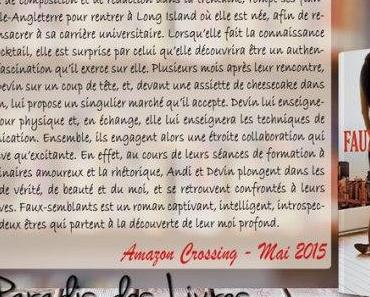 de composition et de rédaction dans la trentaine, rompt ses
le-Angleterre pour rentrer à Long Island où elle est née, afin de re-
nsacrer à sa carrière universitaire. Lorsqu'elle fait la connaissance
cktail, elle est surprise par celui qu'elle découvrira être un authen-
fascination qu'il exerce sur elle. Plusieurs mois après leur rencontre,
Devin sur un coup de tête, et, devant une assiette de cheesecake dans
n, lui propose un singulier marché qu'il accepte. Devin lui enseigne-
our physique et, en échange, elle lui enseignera les techniques de
ication. Ensemble, ils engagent alors une étroite collaboration qui
ve qu'excitante. En effet, au cours de leurs séances de formation à
inaires amoureux et la rhétorique, Andi et Devin plongent dans les
de vérité, de beauté et du moi, et se retrouvent confrontés à leurs
ves. Faux-semblants est un roman captivant, intelligent, introspec-
deux êtres qui partent à la découverte de leur moi profond.
Amazon Crossing - Mai 2015
FAUX
Paradis des Livres